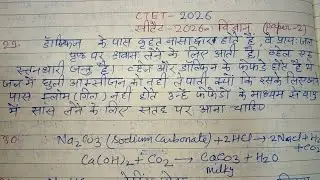 CTET-2026
सीटेट-2026 विज्ञान (Paper-2)
29. डॉल्फिन के पास वृहत नासाद्वार होते हैं, वे प्रायः जल
पृष्ठ पर श्वास लेने के लिए आती हैं। व्हेल एक
स्तनधारी जन्तु है। व्हेल और डॉल्फिन के फेफड़े होते हैं ये
जल में घुली ऑक्सीजन को नहीं ले पाती क्यों कि इसके लिए उनके
पास क्लोम (गिल) नहीं होते उन्हें फेफड़ों के माध्यम से वायु
में सांस लेने के लिए सतह पर आना चाहिए
30. Na2CO3 (Sodium Carbonate) + 2HCl → 2NaCl + H2O
+ CO2
Ca(OH)2 + CO2 → CaCO3 + H2O
milky